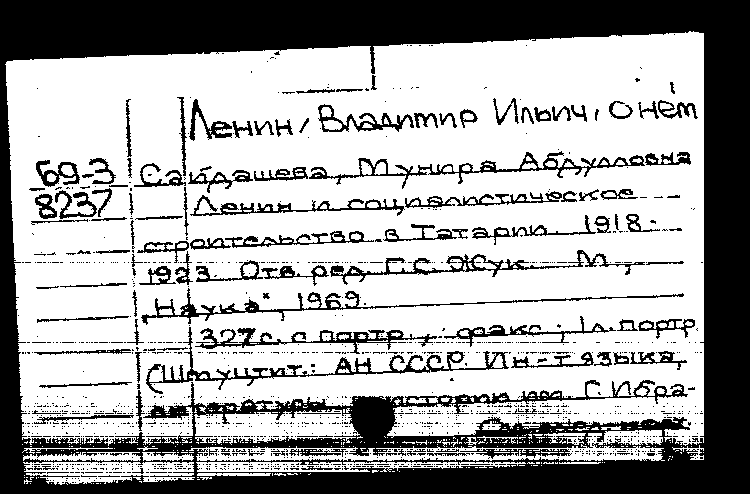 Ленин, Владимир Ильич, о нём
Б9-3 Сайдашева, Мунира Абдулловна
8237 Ленин и социалистическое
строительство в Татарии. 1918-
1923. Отв. ред. Г.С. Жук. М.,
"Наука", 1969.
327 с. с портр., факс.; 1 л. портр
(Шмуцтит.: АН СССР. Ин-т языка,
литературы и истории им. Г. Ибра-
См. след. карт.